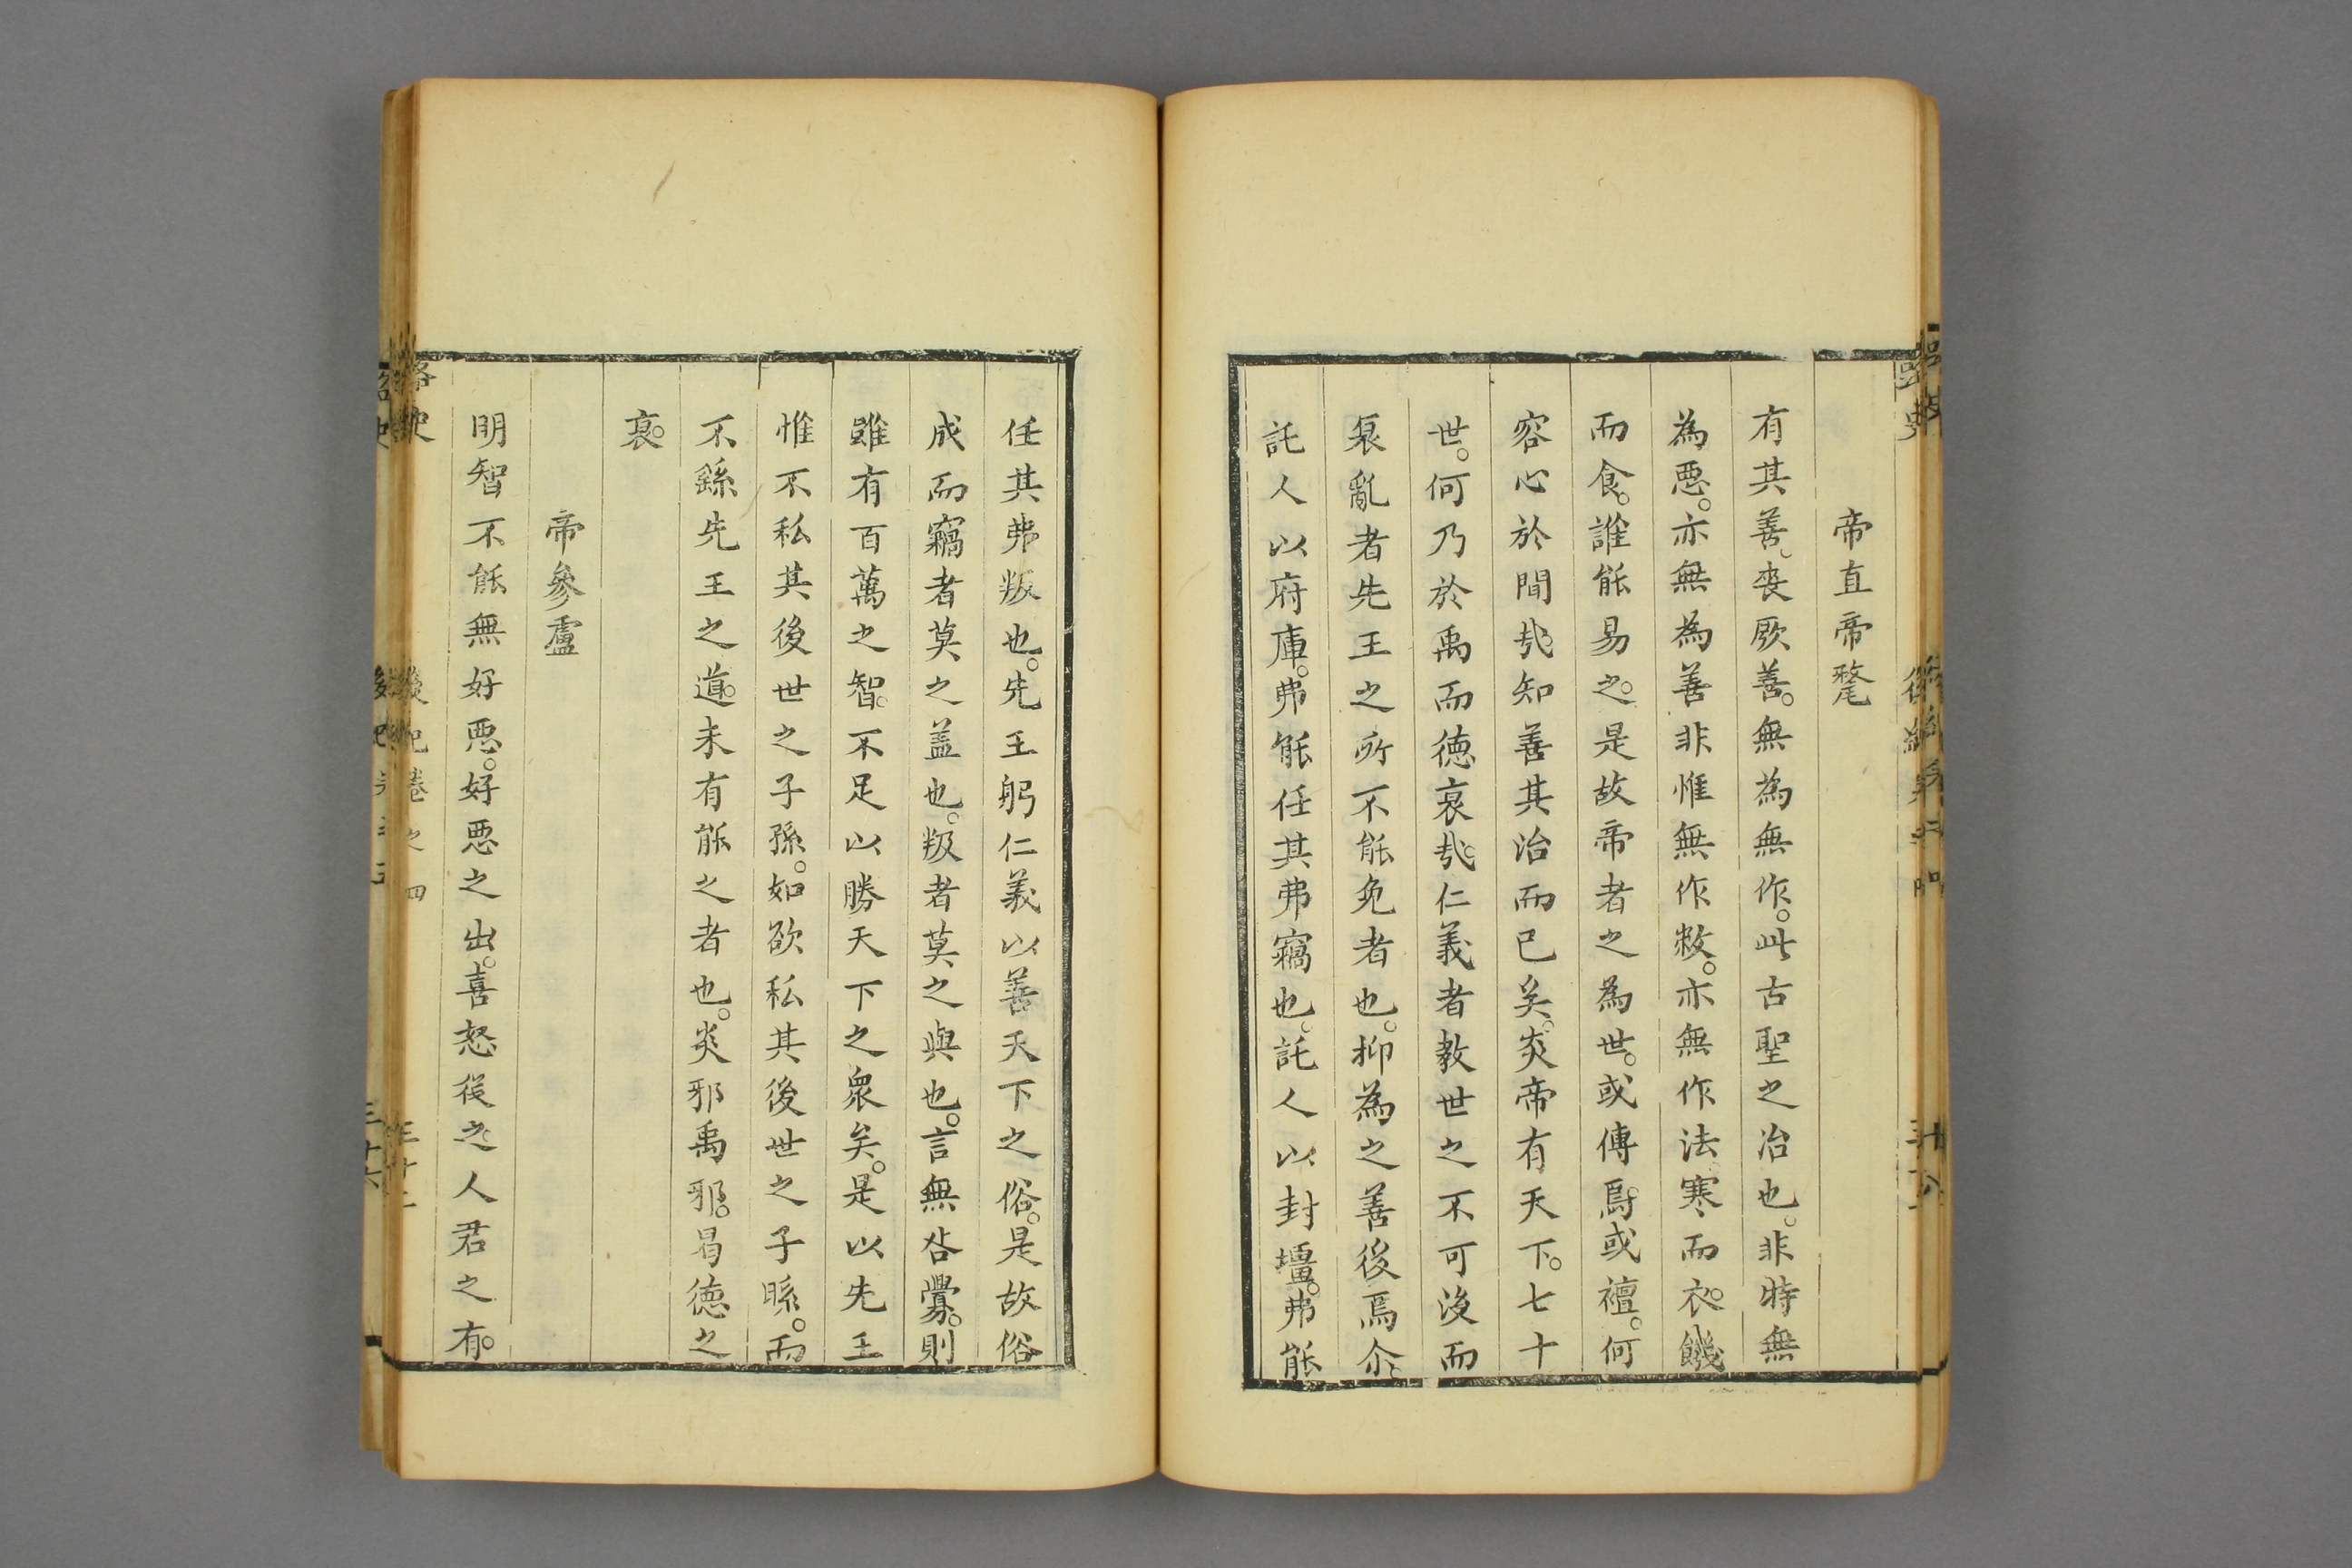 帝直帝氂
有其善、喪厥善。無為無作。此古聖之治也。非時無
為惡。亦無為善非惟無作敉。亦無作法寒而衣。饑
而食。誰能易之。是故帝者之為世。或傳焉或襢。何
容心於間㢤知善其治而已矣。炎帝有天下。七十
世。何乃於禹而德衰㢤。仁義者教世之不可沒而
衰亂者先王之所不能免者也。抑為之善後焉尒。
託人以府庫。弗能任其弗竊也。託人以封壃。弗能
任其弗叛也。先王躬仁義以善天下之俗。是故俗
成而竊者莫之盖也。叛者莫之與也。言無咎釁。則
雖有百萬之智。不足以勝天下之衆矣。是以先王
惟不私其後世之子孫。如欲私其後世之子孫。而
不繇先王之道。未有能之者也。炎邪禹邪。曷德之
衰。
帝參盧
明智不能無好惡。好惡之出。喜怒從之人君之有。
路史
後紀卷之四